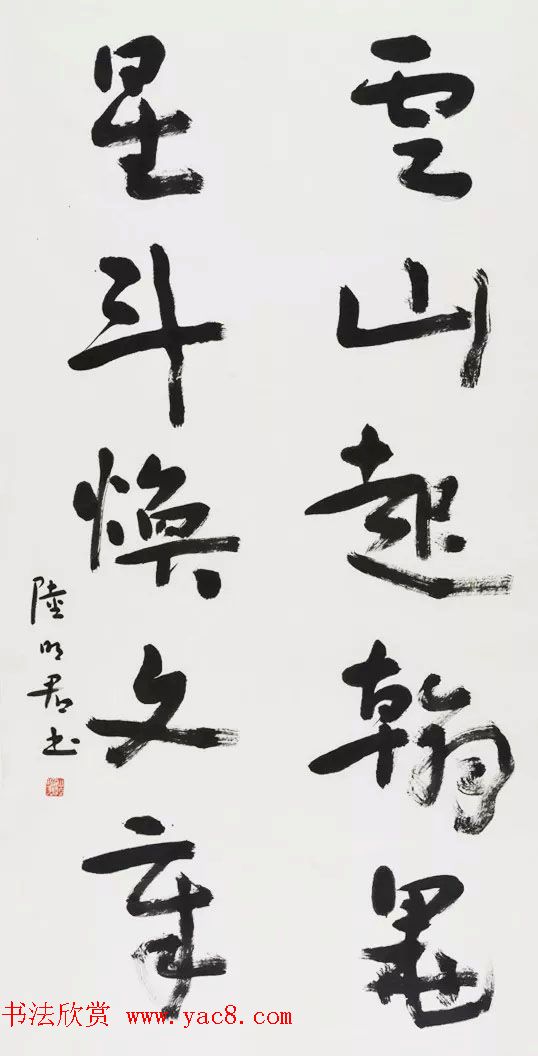 雲山起翰墨
星斗煥文章
陸明君书
书法欣赏 www.yac8.com